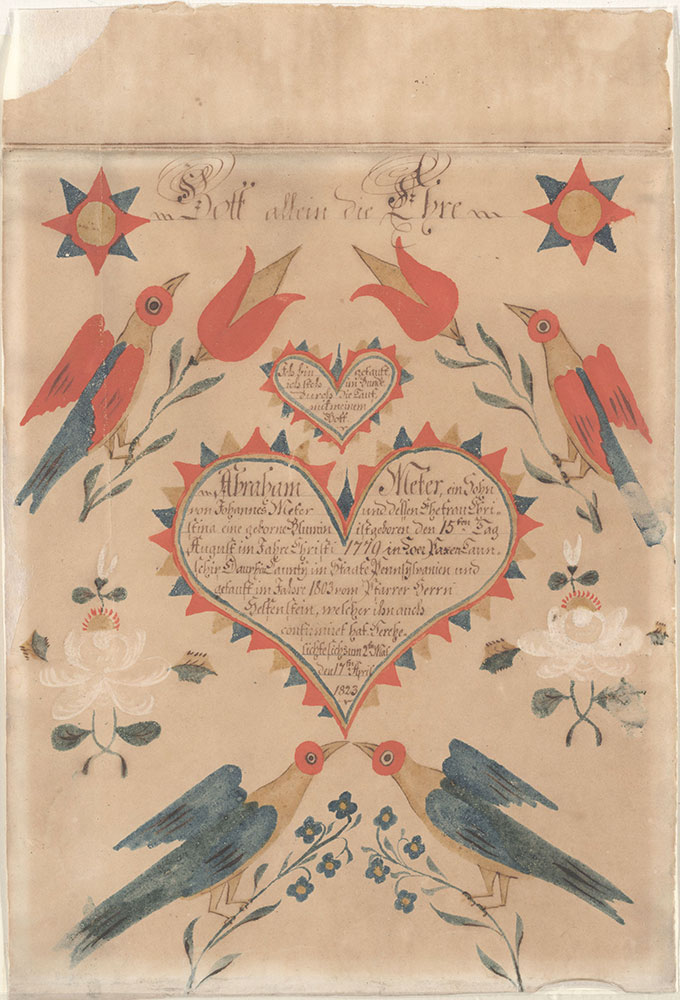 Gott allein die Ehre
Ich bin getauft
ich steh im Bunde
durch die Tauf
mit meinem
Gott
Abraham Meter, ein Sohn
von Johannes Meter und dessen Ehefrau Chri-
stina eine geborne Blumin ist geboren den 15ten Tag
August im Jahre Christi 1779 in Taun-
schip Daupfin Caunty im Staate Pennsylvanien und
getauft im Jahre 1803 vom Pfarrer Herrn
Helfenstein, welcher ihn auch
confirmiret hat. Verehe-
lichte sich zum 2ten Mal
den 17ten April
1823